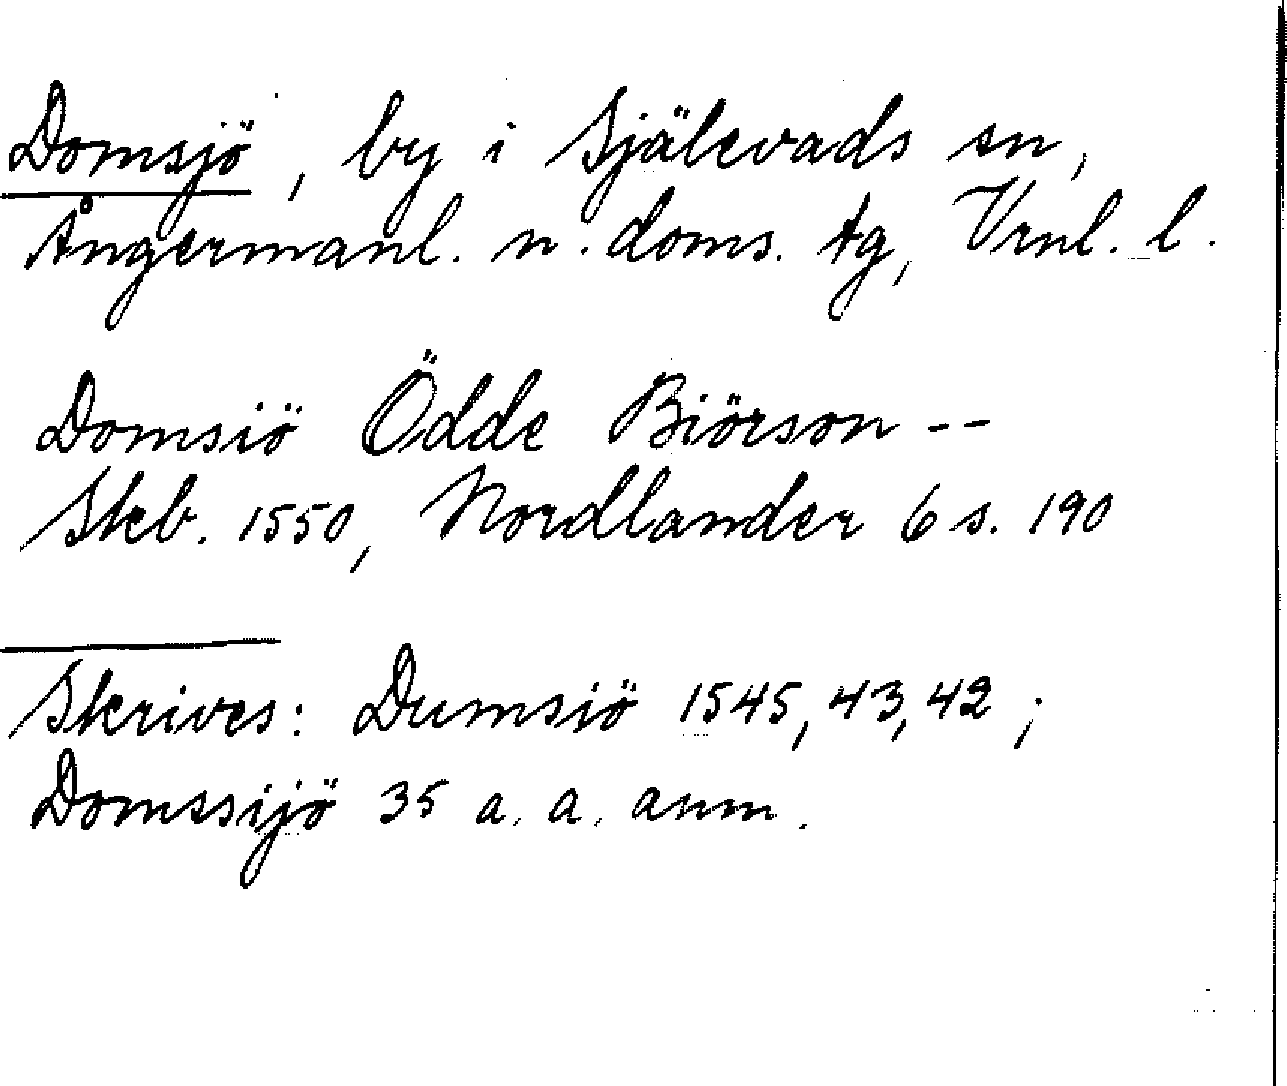 Domsjö, by i Själevads sn,
Ångermanl. n. doms. tg, Vrnl. l.
Domsiö Ödde Biörson --
Skb. 1550, Nordlander 6 s. 190
Skrives: Dumsiö 1545, 43, 42 ;
Domssijö 35 a. a. anm.